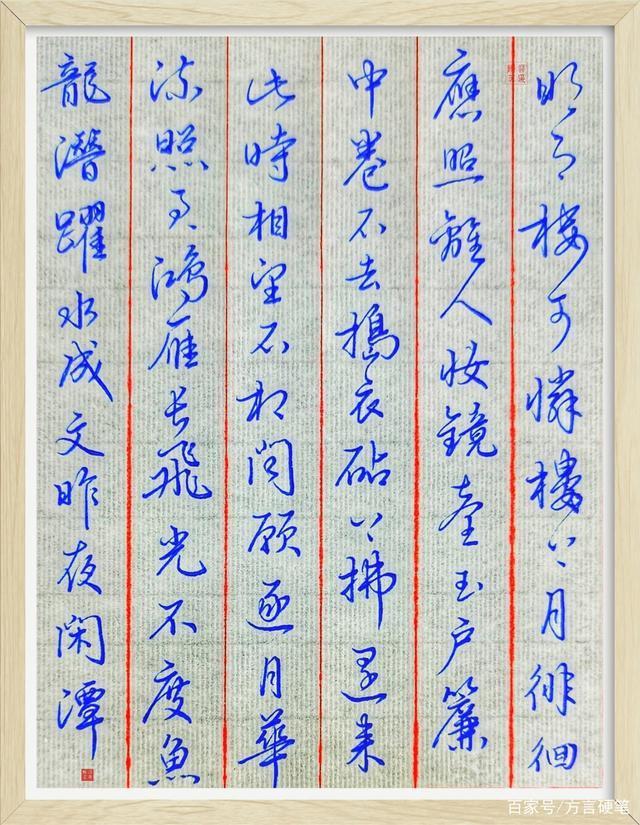 明月楼可憐樓上月徘徊
應照離人妝鏡臺玉户簾
中卷不去搗衣砧上拂還来
此時相望不相聞願逐月華
流照君鴻雁长飛光不度魚
龍潛躍水成文昨夜閑潭
百家号/方言硬笔